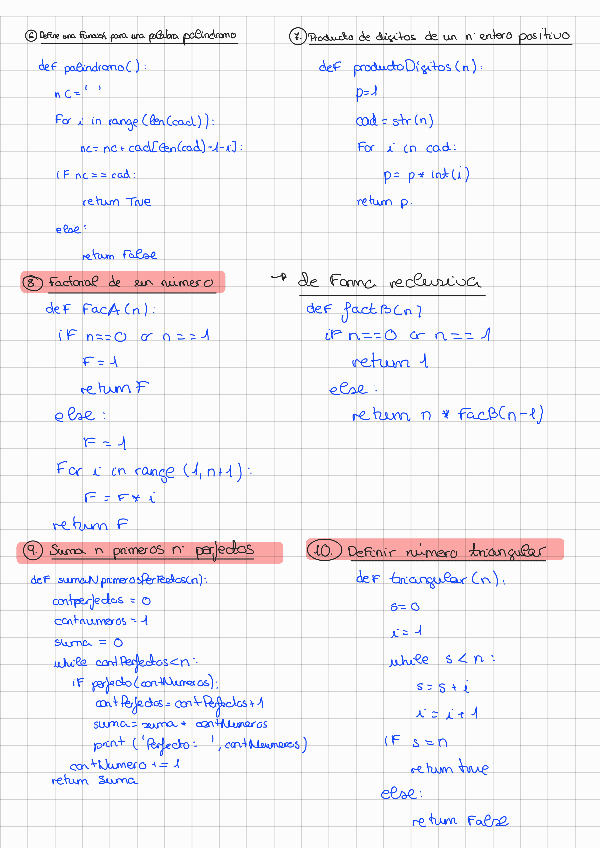 6. Define una función para una palabra palíndromo
def palindromo():
nc=' '
For i in range(len(cad)):
nc= nc+cad[len(cad)-1-i]:
if nc== cad:
return True
else:
return False
7. Producto de dígitos de un nº entero positivo
def productoDigitos(n):
p=1
cad=str(n)
For i in cad:
p= p* int(i)
return p.
8. Factorial de un número
def FacA(n):
if n==0 or n==1
F=1
return F
else:
F=1
For i in range (1,n+1):
F=F*i
return F
→ de Forma reclusiva
def factB(n)
if n==0 or n==1
return 1
else:
return n * FacB(n-1)
9. Suma n primeros nº perfectos
def sumaNprimerosPerfectos(n):
contperfectos = 0
contnumeros = 1
suma = 0
while contPerfectos<n:
if perfecto(contNumeros):
contPerfectos= contPerfectos+1
suma= suma + contNumeros
print ('Perfecto: ', contNeumeros)
contNumero += 1
return suma
10. Definir número triangular
def triangular(n):
s=0
i=1
while s<n:
s=s+i
i=i+1
if s=n
return true
else:
return False